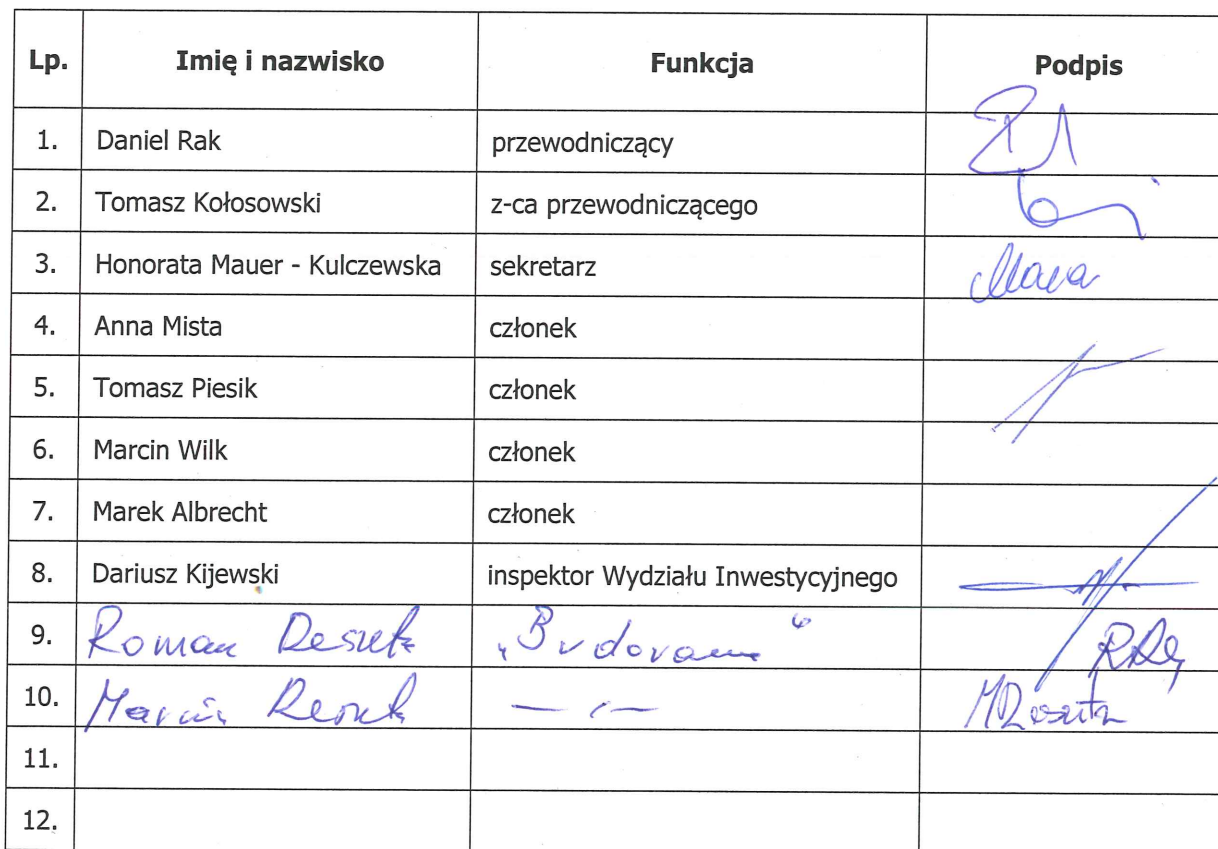 Lp. Imię i nazwisko Funkcja Podpis
1. Daniel Rak przewodniczący
2. Tomasz Kołosowski z-ca przewodniczącego
3. Honorata Mauer - Kulczewska sekretarz
4. Anna Mista członek
5. Tomasz Piesik członek
6. Marcin Wilk członek
7. Marek Albrecht członek
8. Dariusz Kijewski inspektor Wydziału Inwestycyjnego
9. Roman
10. Marcin
11.
12.